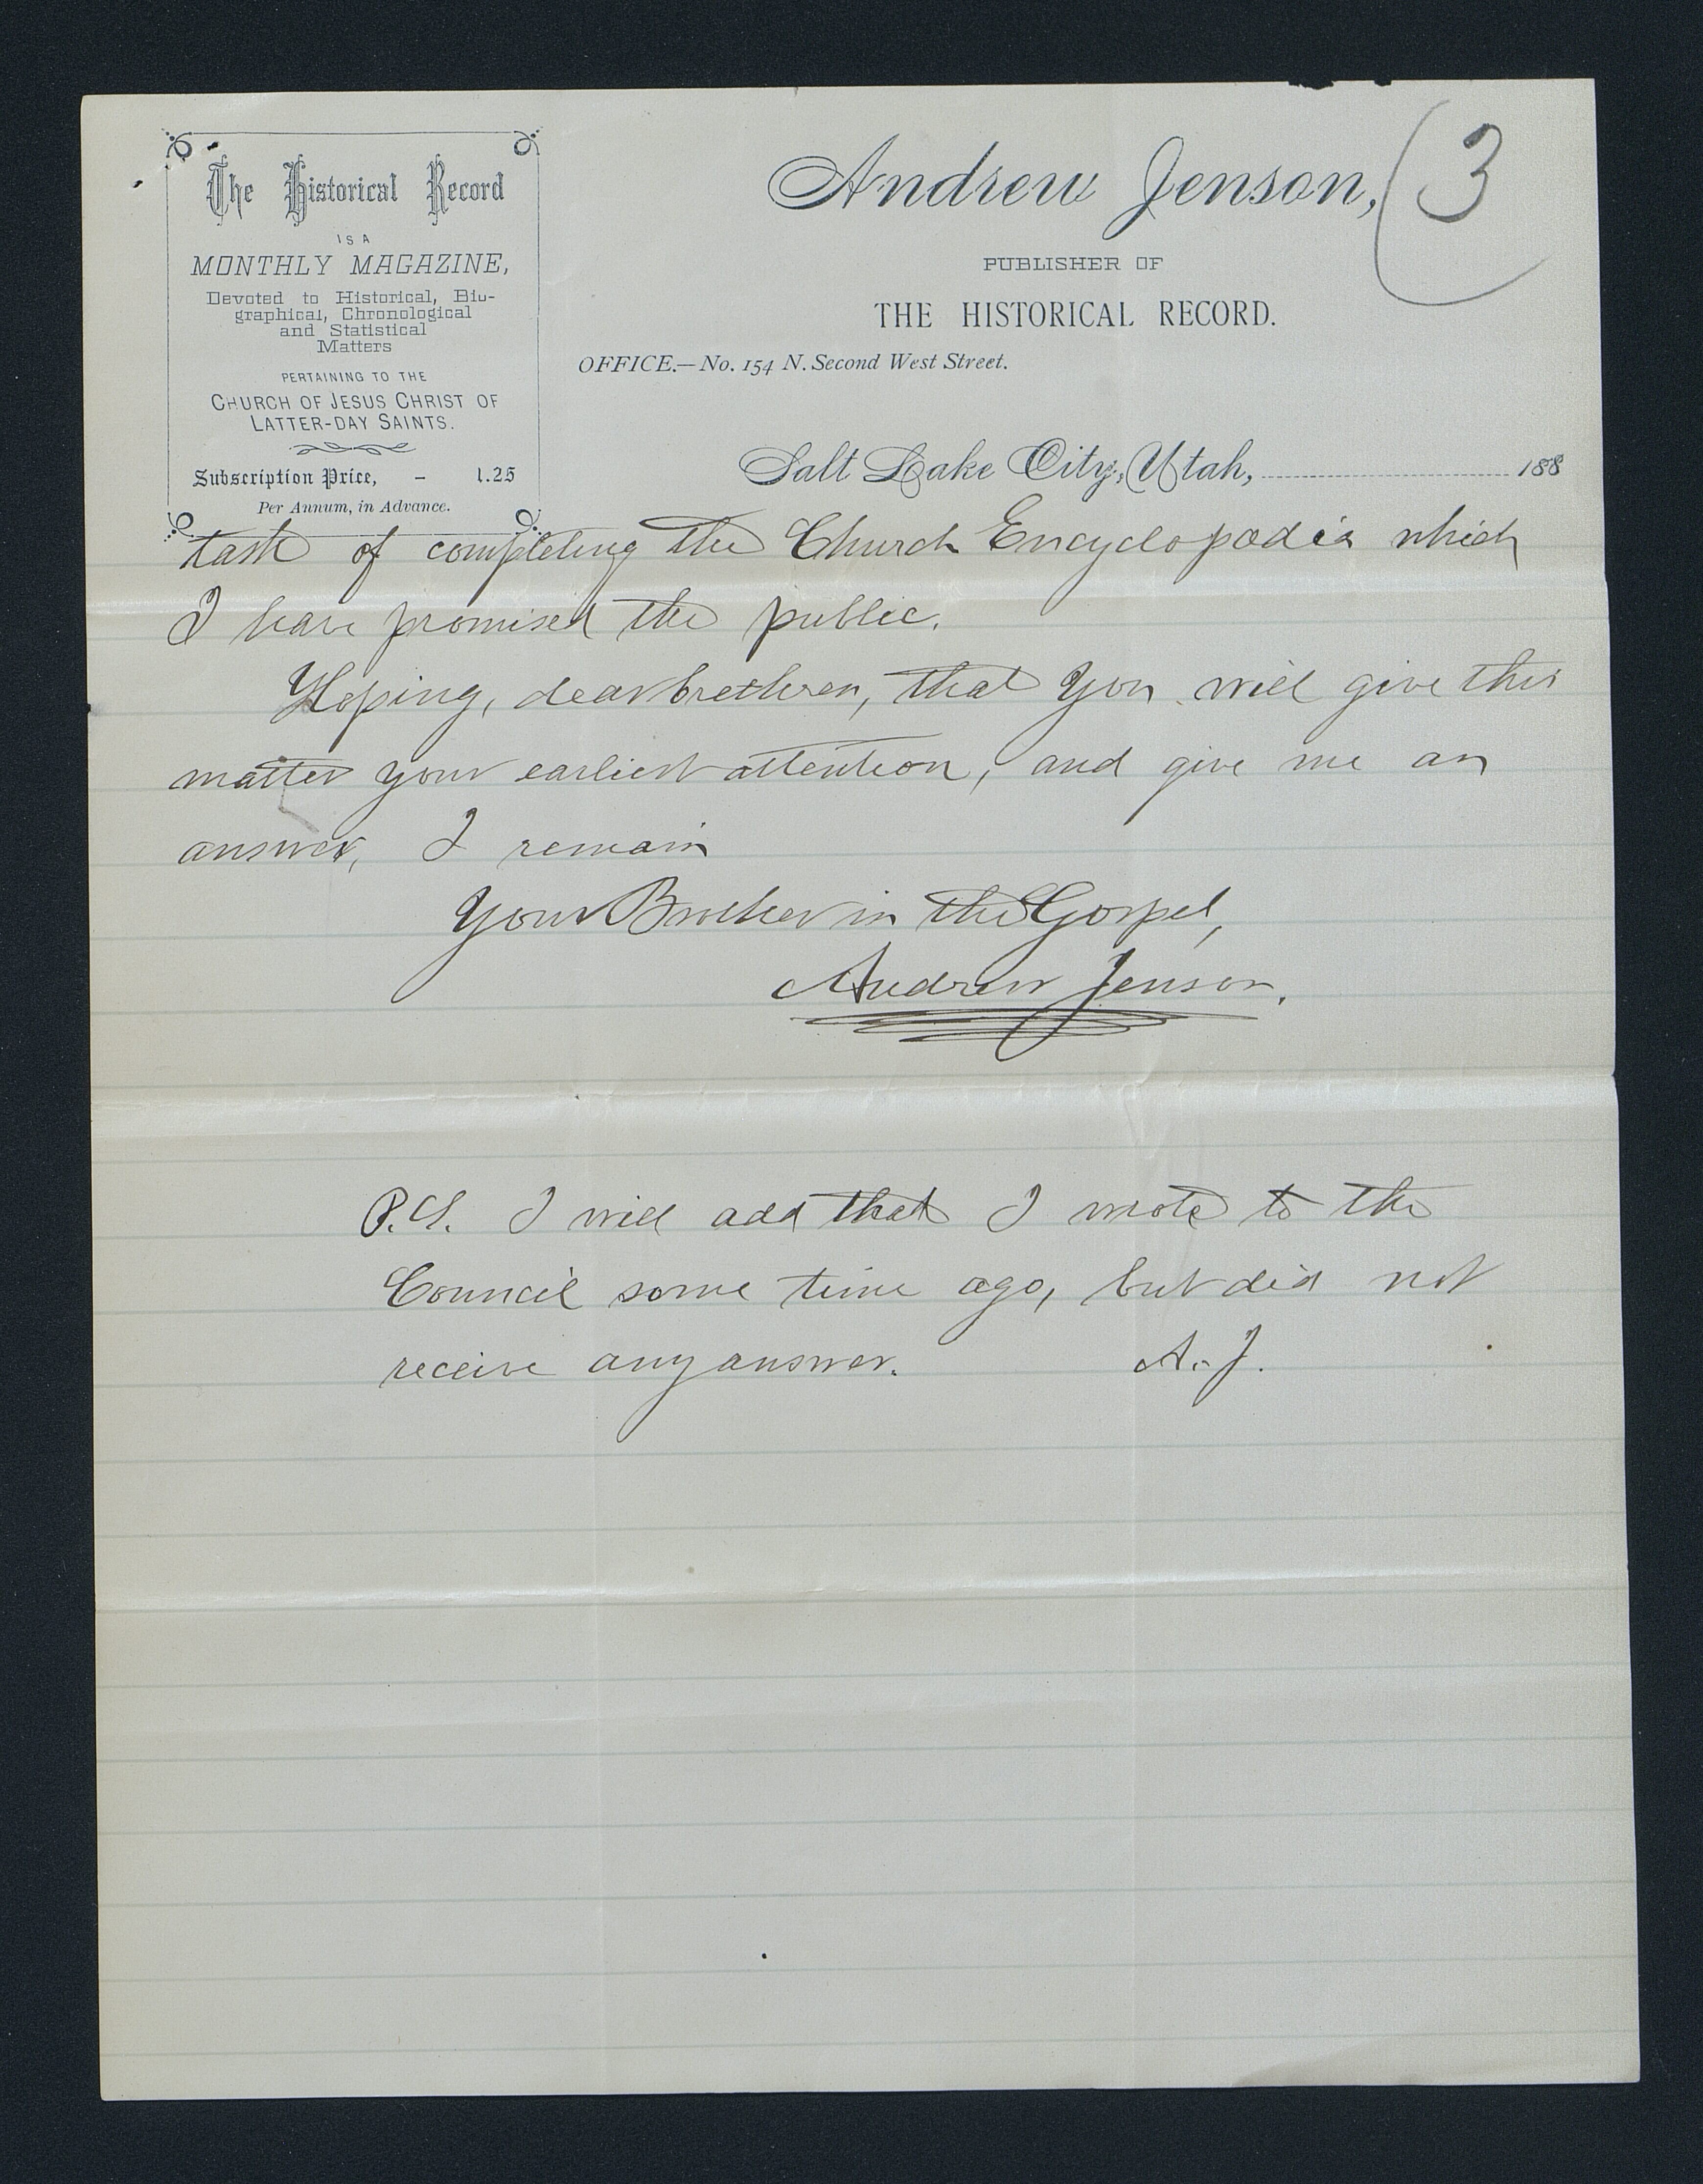 The Historical Record
IS A
MONTHLY MAGAZINE,
Devoted to Historical, Bio-
graphical, Chronological
and Statistical
Matters
PERTAINING TO THE
CHURCH OF JESUS CHRIST OF
LATTER-DAY SAINTS.
Subscription Price, - 1.25
Per Annum, in Advance.
Andrew Jenson,
3
PUBLISHER OF
THE HISTORICAL RECORD.
OFFICE.—No. 154 N. Second West Street.
Salt Lake City, Utah, 188
task of completing the Church Encyclopædia which
I have promised the public.
Hoping, dear brethren, that you will give this
matter your earliest attention, and give me an
answer, I remain
Your Brother in the Gospel,
Andrew Jenson.
P.S. I will add that I wrote to the
Council some time ago, but did not
receive any answer. A. J.